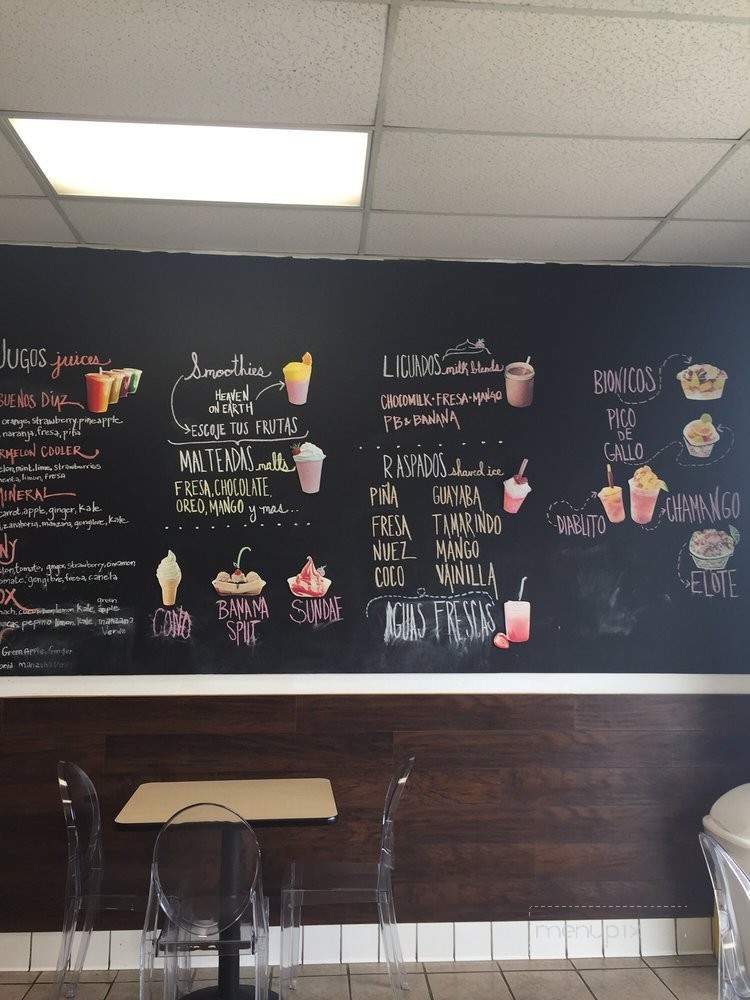 JUGOS juices
BUENOS DÍAZ
orange, strawberry, pineapple
naranja, fresa, piña
RMELON COOLER
elon, mint, lime, strawberries
menta, limon, fresa
MINERAL
carrot, apple, ginger, kale
zanahoria, manzana, gengibre, kale
NY
tomato, ginger, strawberry, cinnamon
tomate, gengibre, fresa, canela
OX
green
kale, apple
pepino limon, kale, manzana
verde
Green Apple, Ginger
Smoothies
HEAVEN
ON EARTH
ESCOJE TUS FRUTAS
MALTEADAS malts
FRESA, CHOCOLATE,
OREO, MANGO y mas...
CONO
BANANA
SPLIT
SUNDAE
LICUADOS milk blends
CHOCOMILK-FRESA-MANGO
PB & BANANA
RASPADOS shaved ice
PIÑA GUAYABA
FRESA TAMARINDO
NUEZ MANGO
COCO VAINILLA
AGUAS FRESCAS
BIONICOS
PICO
DE
GALLO
DIABLITO
CHAMANGO
ELOTE
menupix